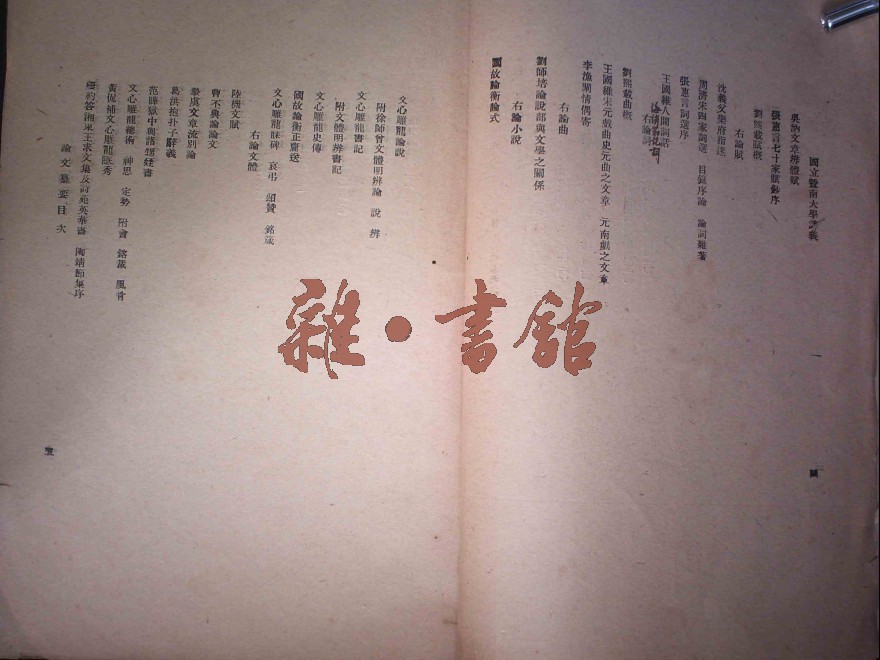 國立暨南大學講義
吳訥文章辨體賦
張惠言七十家賦鈔序
劉熙載賦概
右論賦
沈義父樂府指迷
周濟宋四家詞選 目錄序論 論詞雜著
張惠言詞選序
王國維人間詞話
右論詞
劉熙載曲概
王國維宋元戲曲史元曲之文章 元南戲之文章
李漁閒情偶寄
右論曲
劉師培論說部與文學之關係
右論小說
國故論衡論式
四
文心雕龍論說
附徐師曾文體明辨論 說 辨
文心雕龍書記
附文體明辨書記
文心雕龍史傳
國故論衡正齎送
文心雕龍誄碑 哀弔 頌贊 銘箴
右論文體
陸機文賦
曹丕典論論文
摯虞文章流別論
葛洪抱朴子辭義
范曄獄中與諸甥姪書
文心雕龍總術 神思 定勢 附會 鎔裁 風骨
黃侃補文心雕龍隱秀
答湘東王求文集及詩苑英華書 陶靖節集序
論文纂要目次
五
雜·書館